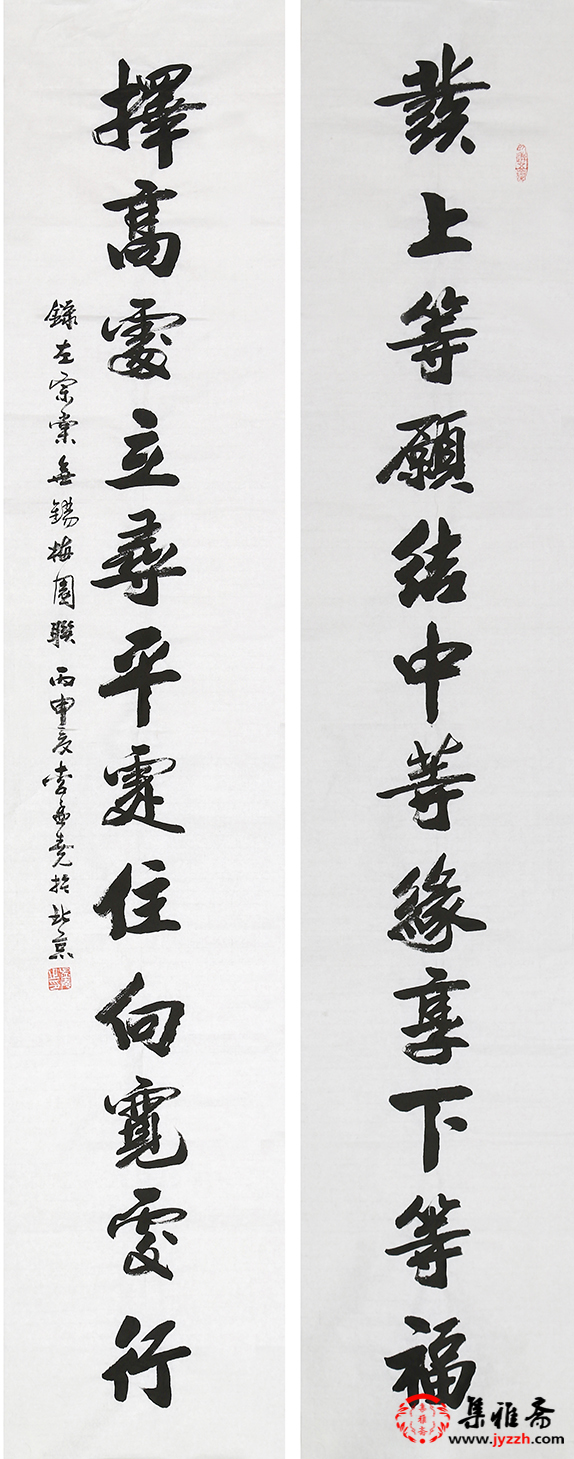 發上等願結中等緣享下等福
擇高處立尋平處住向寬處行
錄左宗棠無錫梅園聯丙申夏李孟堯於北京
集雅斋
www.jyzzh.com